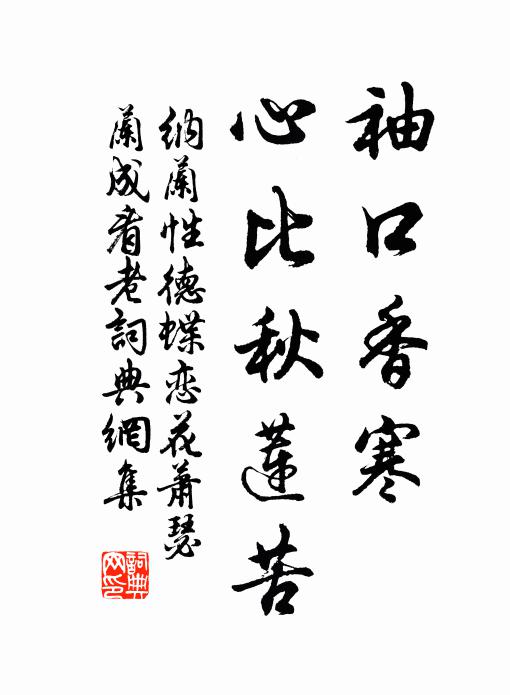 袖口香寒
心比秋蓮苦
納蘭性德蝶恋花蕭瑟
蘭成看老詞典網集
詞典网印